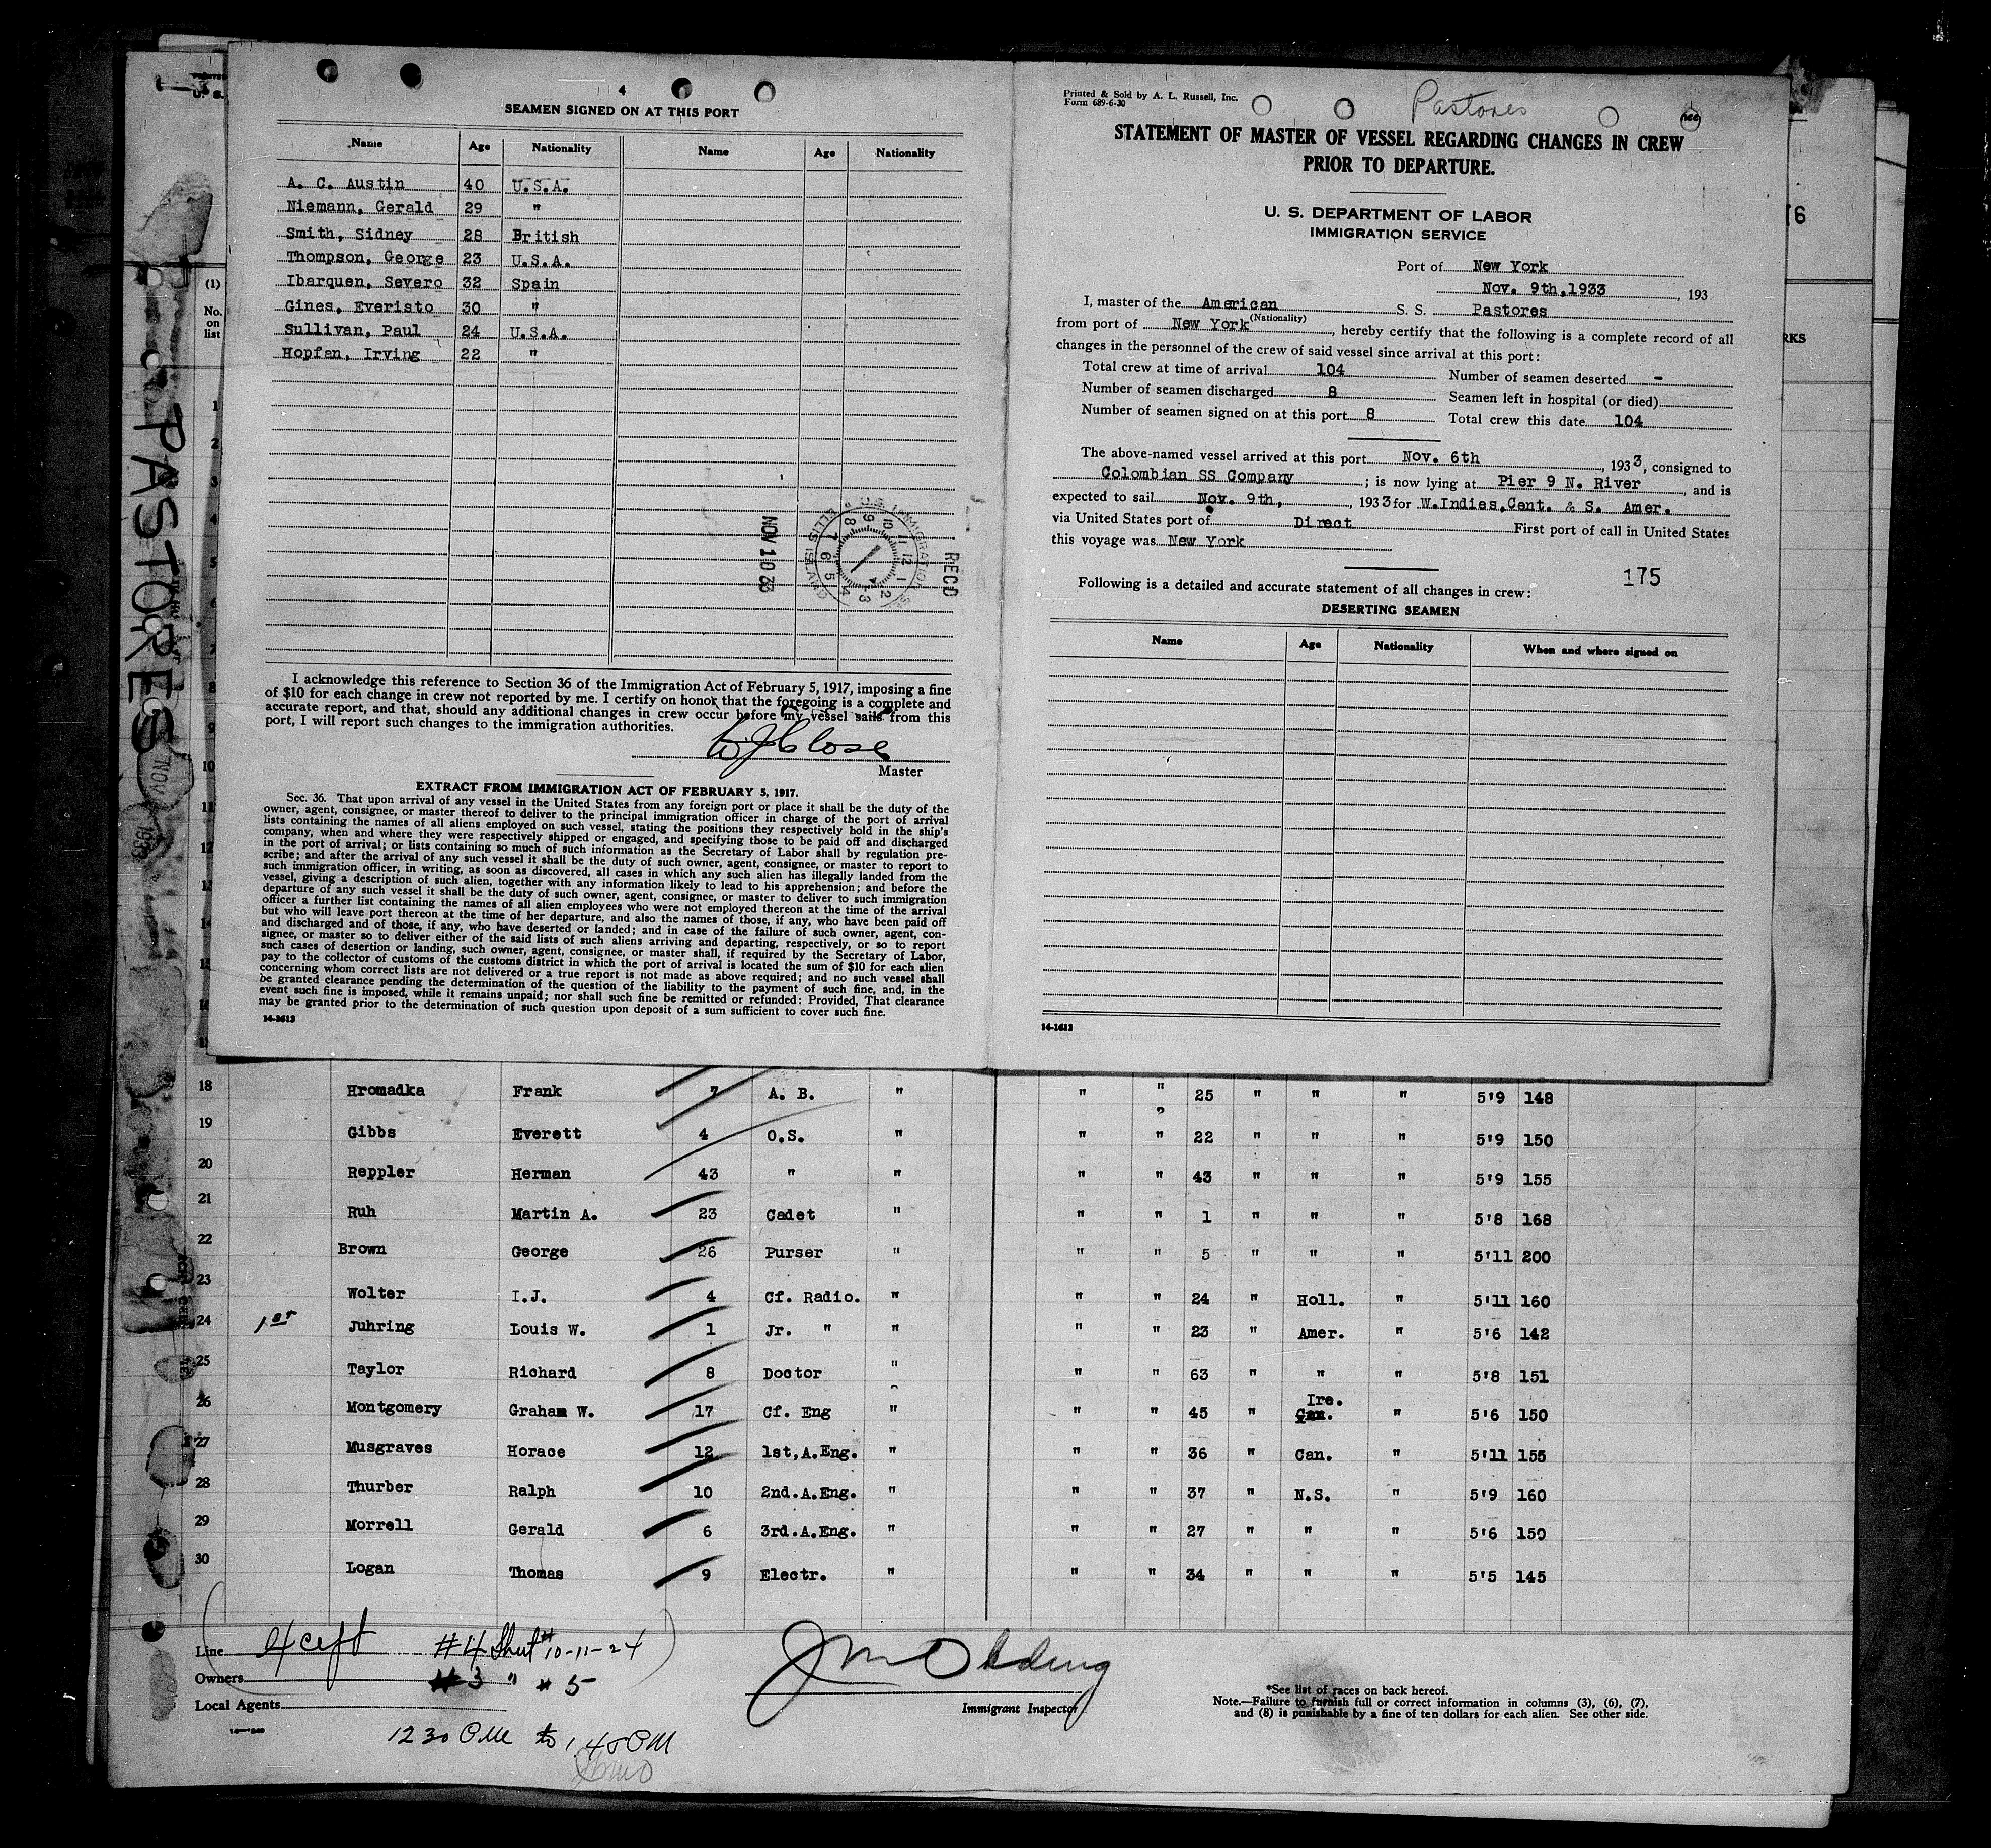 4
SEAMEN SIGNED ON AT THIS PORT
Name Age Nationality Name Age Nationality
A. C. Austin 40 U.S.A.
Niemann, Gerald 29 "
Smith, Sidney 28 British
Thompson, George 23 U.S.A.
Ibarquen, Severo 32 Spain
Gines, Everisto 30 "
Sullivan, Paul 24 U.S.A.
Hopfan, Irving 22 "
RECD
NOV 10 33
U.S. IMMIGRATION
ELLIS ISLAND
I acknowledge this reference to Section 36 of the Immigration Act of February 5, 1917, imposing a fine
of $10 for each change in crew not reported by me. I certify on honor that the foregoing is a complete and
accurate report, and that, should any additional changes in crew occur before my vessel sails from this
port, I will report such changes to the immigration authorities.
W J Close
Master
EXTRACT FROM IMMIGRATION ACT OF FEBRUARY 5, 1917.
Sec. 36. That upon arrival of any vessel in the United States from any foreign port or place it shall be the duty of the
owner, agent, consignee, or master thereof to deliver to the principal immigration officer in charge of the port of arrival
lists containing the names of all aliens employed on such vessel, stating the positions they respectively hold in the ship's
company, when and where they were respectively shipped or engaged, and specifying those to be paid off and discharged
in the port of arrival; or lists containing so much of such information as the Secretary of Labor shall by regulation pre-
scribe; and after the arrival of any such vessel it shall be the duty of such owner, agent, consignee, or master to report to
such immigration officer, in writing, as soon as discovered, all cases in which any such alien has illegally landed from the
vessel, giving a description of such alien, together with any information likely to lead to his apprehension; and before the
departure of any such vessel it shall be the duty of such owner, agent, consignee, or master to deliver to such immigration
officer a further list containing the names of all alien employees who were not employed thereon at the time of the arrival
but who will leave port thereon at the time of her departure, and also the names of those, if any, who have been paid off
and discharged and of those, if any, who have deserted or landed; and in case of the failure of such owner, agent, con-
signee, or master so to deliver either of the said lists of such aliens arriving and departing, respectively, or so to report
such cases of desertion or landing, such owner, agent, consignee, or master shall, if required by the Secretary of Labor,
pay to the collector of customs of the customs district in which the port of arrival is located the sum of $10 for each alien
concerning whom correct lists are not delivered or a true report is not made as above required; and no such vessel shall
be granted clearance pending the determination of the question of the liability to the payment of such fine, and, in the
event such fine is imposed, while it remains unpaid; nor shall such fine be remitted or refunded: Provided, That clearance
may be granted prior to the determination of such question upon deposit of a sum sufficient to cover such fine.
14-1613
Printed & Sold by A. L. Russell, Inc.
Form 689-6-30
Pastores
STATEMENT OF MASTER OF VESSEL REGARDING CHANGES IN CREW
PRIOR TO DEPARTURE.
U. S. DEPARTMENT OF LABOR
IMMIGRATION SERVICE
Port of New York
Nov. 9th,1933, 193
I, master of the American S. S. Pastores
(Nationality)
from port of New York, hereby certify that the following is a complete record of all
changes in the personnel of the crew of said vessel since arrival at this port:
Total crew at time of arrival 104 Number of seamen deserted -
Number of seamen discharged 8 Seamen left in hospital (or died)
Number of seamen signed on at this port 8 Total crew this date 104
The above-named vessel arrived at this port Nov. 6th, 1933, consigned to
Colombian SS Company; is now lying at Pier 9 N. River, and is
expected to sail Nov. 9th, , 1933 for W.Indies,Cent. & S. Amer.
via United States port of Direct First port of call in United States
this voyage was New York
175
Following is a detailed and accurate statement of all changes in crew:
DESERTING SEAMEN
Name Age Nationality When and where signed on
14-1613
PASTORES
(1)
No.
on
list
1
2
3
4
5
6
7
8
9
10
11
12
13
14
18 Hromadka Frank 7 A. B. " " " 25 " " " 5'9 148
19 Gibbs Everett 4 O.S. " " " 22 " " " 5'9 150
20 Reppler Herman 43 " " " " 43 " " " 5'9 155
21 Ruh Martin A. 23 Cadet " " " 1 " " " 5'8 168
22 Brown George 26 Purser " " " 5 " " " 5'11 200
23 Wolter I.J. 4 Cf. Radio. " " " 24 " Holl. " 5'11 160
24 1st Juhring Louis W. 1 Jr. " " " " 23 " Amer. " 5'6 142
25 Taylor Richard 8 Doctor " " " 63 " " " 5'8 151
26 Montgomery Graham W. 17 Cf. Eng " " " 45 " Ire. " 5'6 150
27 Musgraves Horace 12 1st,A.Eng. " " " 36 " Can. " 5'11 155
28 Thurber Ralph 10 2nd.A.Eng. " " " 37 " N.S. " 5'9 160
29 Morrell Gerald 6 3rd.A.Eng. " " " 27 " " " 5'6 150
30 Logan Thomas 9 Electr. " " " 34 " " " 5'5 145
Line except #4 Sheet # 10-11-24
Owners #3 " # 5
Local Agents
Immigrant Inspector
*See list of races on back hereof.
Note.—Failure to furnish full or correct information in columns (3), (6), (7),
and (8) is punishable by a fine of ten dollars for each alien. See other side.
12 30 PM to 1.45 PM